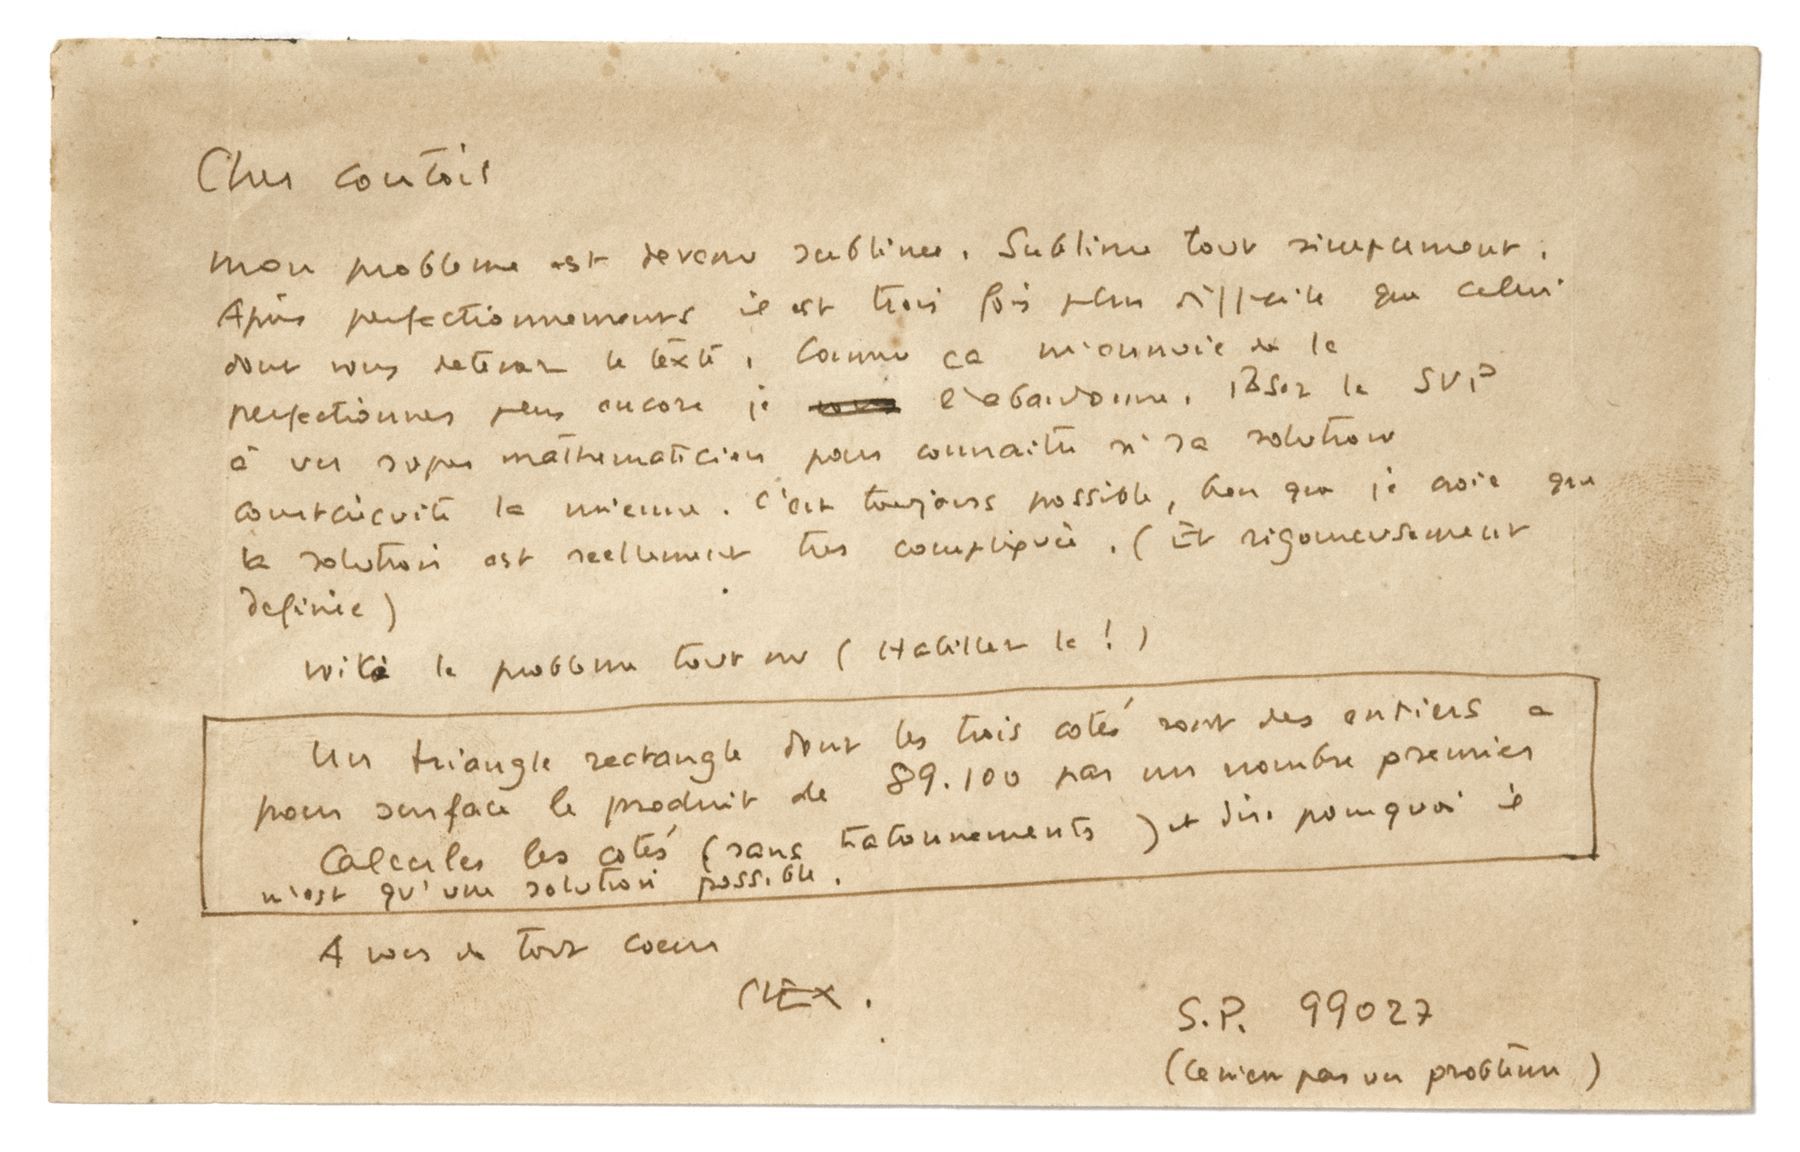 Cher coutois
mon probleme est devenu sublime. Sublime tout simplement.
Après perfectionnements il est trois fois plus difficile que celui
dont vous detenez le texte. Comme ça m'ennuie de le
perfectionner plus encore je l'abandonne. Posez le SVP
à un super mathematicien pour connaitre si sa solution
courtcircuite la mienne. C'est toujours possible, bien que je croie que
la solution est reellement très compliquée. (Et rigoureusement
definie)
voilà le probleme tout nu (Habillez le !)
Un triangle rectangle dont les trois cotés sont des entiers a
pour surface le produit de 89.100 par un nombre premier
Calculer les cotés (sans tatonnements) et dire pourquoi il
n'est qu'une solution possible.
A vous de tout coeur
S.P. 99027
(Ce n'est pas un problème)